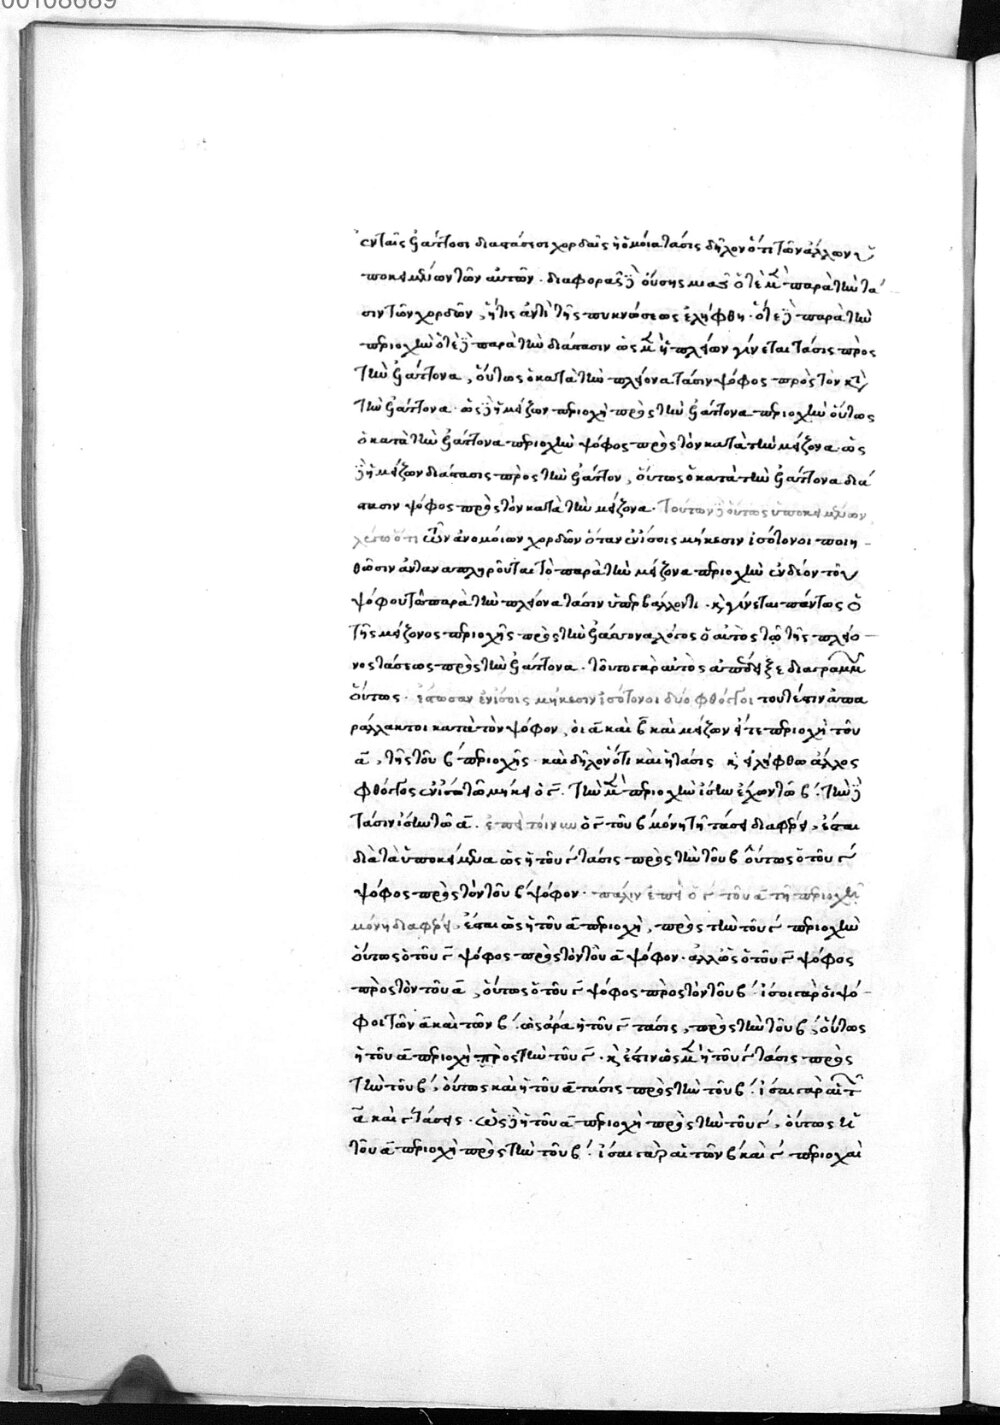 00108689
ἐν ταῖς ἐλάττοσι διαστάσεσι χορδαῖς ἡ ὁμοία τάσις δῆλον ὅτι τῶν ἄλλων ὑ
ποκειμένων τῶν αὐτῶν. διαφορᾶς δὲ οὔσης μιᾶς ὁτὲ μὲν παρὰ τὴν τά
σιν τῶν χορδῶν, ἥτις ἀντὶ τῆς πυκνώσεως ἐλήφθη. ὁτὲ δὲ παρὰ τὴν
περιοχὴν ὁτὲ δὲ παρὰ τὴν διάστασιν ὡς μὲν ἡ πλείων γίνεται τάσις πρὸς
τὴν ἐλάττονα, οὕτως ὁ κατὰ τὴν πλείονα τάσιν ψόφος πρὸς τὸν κατὰ
τὴν ἐλάττονα. ὡς δὲ ἡ μείζων περιοχὴ πρὸς τὴν ἐλάττονα περιοχὴν οὕτως
ὁ κατὰ τὴν ἐλάττονα περιοχὴν ψόφος πρὸς τὸν κατὰ τὴν μείζονα. ὡς
δὲ ἡ μείζων διάστασις πρὸς τὴν ἐλάττον, οὕτως ὁ κατὰ τὴν ἐλάττονα διά
στασιν ψόφος πρὸς τὸν κατὰ τὴν μείζονα. τούτων δὲ οὕτως ὑποκειμένων
λέγω ὅτι τῶν ἀνομοίων χορδῶν ὅταν ἐν ἴσοις μήκεσιν ἰσότονοι ποιη
θῶσιν ἀνταναπληροῦται τὸ παρὰ τὴν μείζονα περιοχὴν ἐνδέον τοῦ
ψόφου τῷ παρὰ τὴν πλείονα τάσιν ὑπερβάλλοντι. καὶ γίνεται πάντως ὁ
τῆς μείζονος περιοχῆς πρὸς τὴν ἐλάττονα λόγος ὁ αὐτὸς τῷ τῆς πλείο
νος τάσεως πρὸς τὴν ἐλάττονα. τοῦτο γὰρ αὐτὸς ἀπέδειξε διαγράμμ
οὕτως. ἔστωσαν ἐν ἴσοις μήκεσιν ἰσότονοι δύο φθόγγοι τουτέστιν ἀπα
ράλλακτοι κατὰ τὸν ψόφον, οἱ α καὶ β καὶ μείζων ἔστω περιοχὴ τοῦ
α, τῆς τοῦ β περιοχῆς. καὶ δῆλον ὅτι καὶ ἡ τάσις καὶ εἰλήφθω ἄλλος
φθόγγος ἐν ἴσῳ τῷ μήκει ὁ γ. τὴν μὲν περιοχὴν ἴσην ἔχων τῷ β. τὴν δὲ
τάσιν ἴσην τῷ α. ἐπεὶ τοίνυν ὁ γ τοῦ β μόνῃ τῇ τάσει διαφέρει, ἔσται
διὰ τὰ ὑποκείμενα ὡς ἡ τοῦ γ τάσις πρὸς τὴν τοῦ β οὕτως ὁ τοῦ γ
ψόφος πρὸς τὸν τοῦ β ψόφον. πάλιν ἐπεὶ ὁ γ τοῦ α τῇ περιοχῇ
μόνῃ διαφέρει, ἔσται ὡς ἡ τοῦ α περιοχὴ, πρὸς τὴν τοῦ γ περιοχὴν
οὕτως ὁ τοῦ γ ψόφος πρὸς τὸν τοῦ α ψόφον. ἀλλ ὡς ὁ τοῦ γ ψόφος
πρὸς τὸν τοῦ α, οὕτως ὁ τοῦ γ ψόφος πρὸς τὸν τοῦ β. ἴσοι γὰρ οἱ ψό
φοι τῶν α καὶ τῶν β. ὡς ἄρα ἡ τοῦ γ τάσις, πρὸς τὴν τοῦ β, οὕτως
ἡ τοῦ α περιοχὴ πρὸς τὴν τοῦ γ. καὶ ἔστιν ὡς μὲν ἡ τοῦ γ τάσις πρὸς
τὴν τοῦ β, οὕτως καὶ ἡ τοῦ α τάσις πρὸς τὴν τοῦ β. ἴσαι γὰρ αἱ τῶν
α καὶ γ τάσεις. ὡς δὲ ἡ τοῦ α περιοχὴ πρὸς τὴν τοῦ γ, οὕτως ἡ
τοῦ α περιοχὴ πρὸς τὴν τοῦ β. ἴσαι γὰρ αἱ τῶν β καὶ γ περιοχαὶ